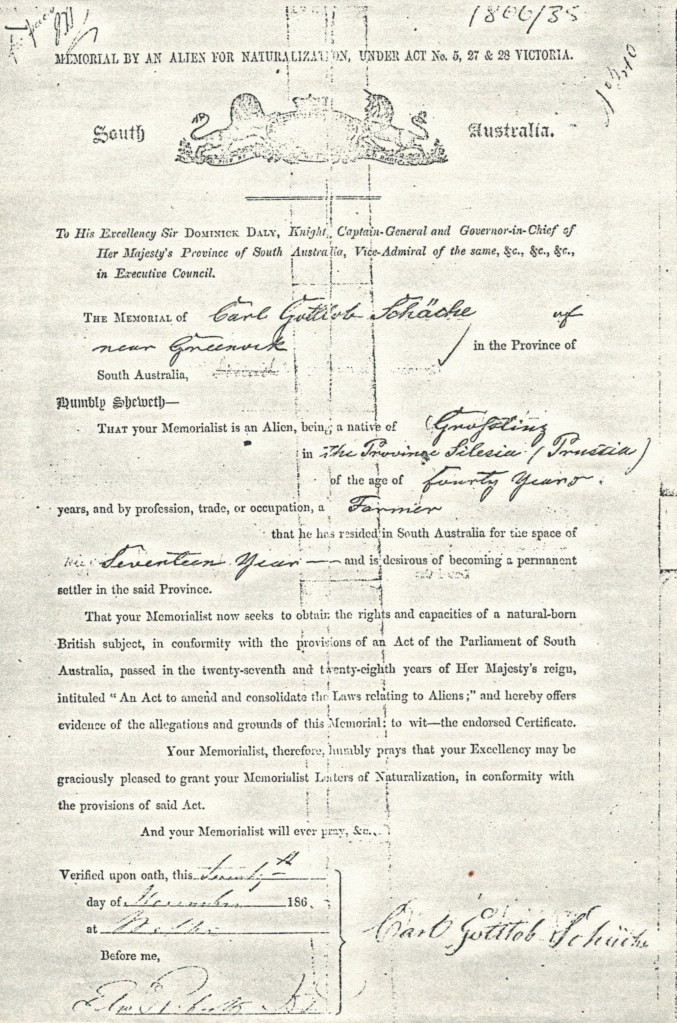 1866/35
MEMORIAL BY AN ALIEN FOR NATURALIZATION, UNDER ACT No. 5, 27 & 28 VICTORIA.
South Australia.
To His Excellency Sir DOMINICK DALY, Knight, Captain-General and Governor-in-Chief of
Her Majesty's Province of South Australia, Vice-Admiral of the same, &c., &c., &c.,
in Executive Council.
THE MEMORIAL OF Carl Gottlob Schäche of
near Greenock in the Province of
South Australia,
Humbly Sheweth—
THAT your Memorialist is an Alien, being a native of
in the Province Silesia (Prussia)
of the age of fourty Years.
years, and by profession, trade, or occupation, a Farmer
that he has resided in South Australia for the space of
Seventeen Year — and is desirous of becoming a permanent
settler in the said Province.
That your Memorialist now seeks to obtain the rights and capacities of a natural-born
British subject, in conformity with the provisions of an Act of the Parliament of South
Australia, passed in the twenty-seventh and twenty-eighth years of Her Majesty's reign,
intituled "An Act to amend and consolidate the Laws relating to Aliens;" and hereby offers
evidence of the allegations and grounds of this Memorial: to wit—the endorsed Certificate.
Your Memorialist, therefore, humbly prays that your Excellency may be
graciously pleased to grant your Memorialist Letters of Naturalization, in conformity with
the provisions of said Act.
And your Memorialist will ever pray, &c.
Verified upon oath, this
day of November 186
at
Before me,
Carl Gottlob Schäche